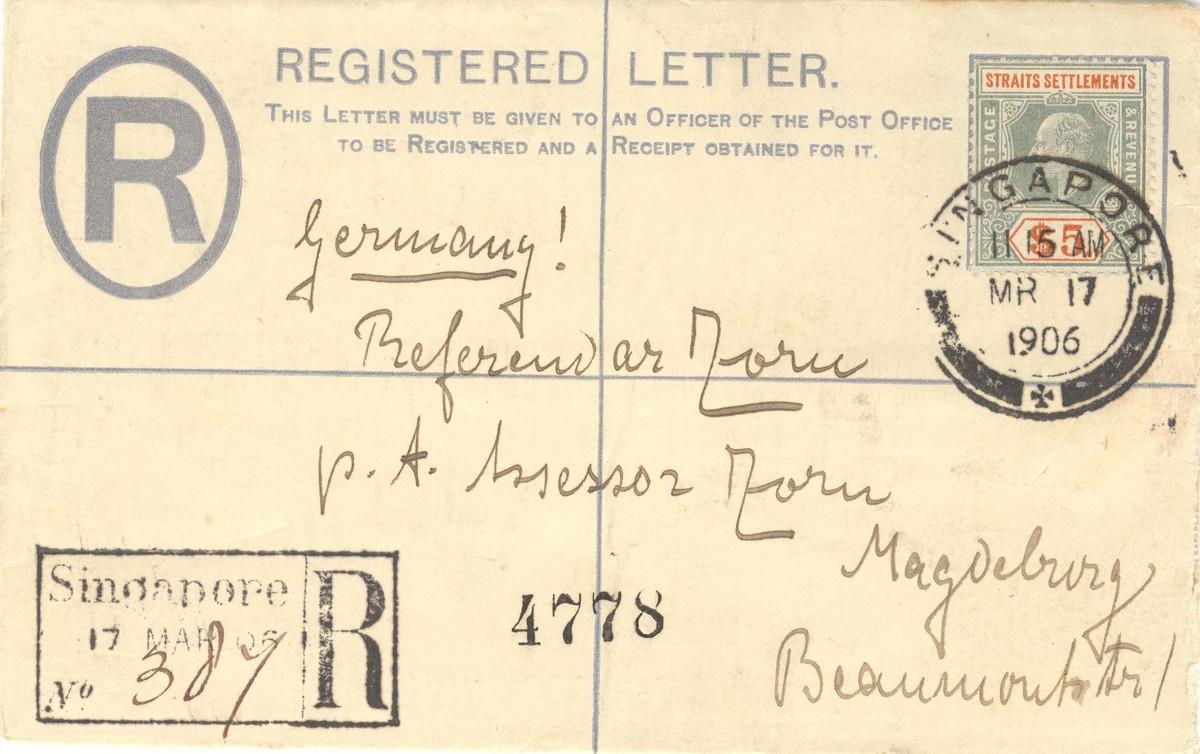 R
REGISTERED LETTER.
THIS LETTER MUST BE GIVEN TO AN OFFICER OF THE POST OFFICE
TO BE REGISTERED AND A RECEIPT OBTAINED FOR IT.
STRAITS SETTLEMENTS
POSTAGE & REVENUE
$5
SINGAPORE
11 15 AM
MR 17
1906
Germany!
Referendar Zorn
p. A. Assessor Zorn
Magdeburg
Beaumontstr 1
Singapore
17 MAR 06
No 387
R
4778